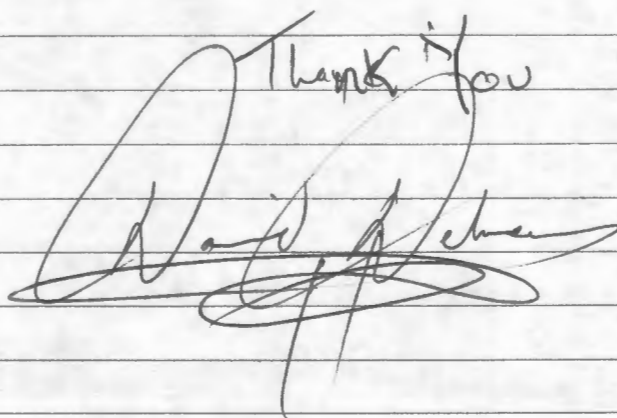 Thank You
David